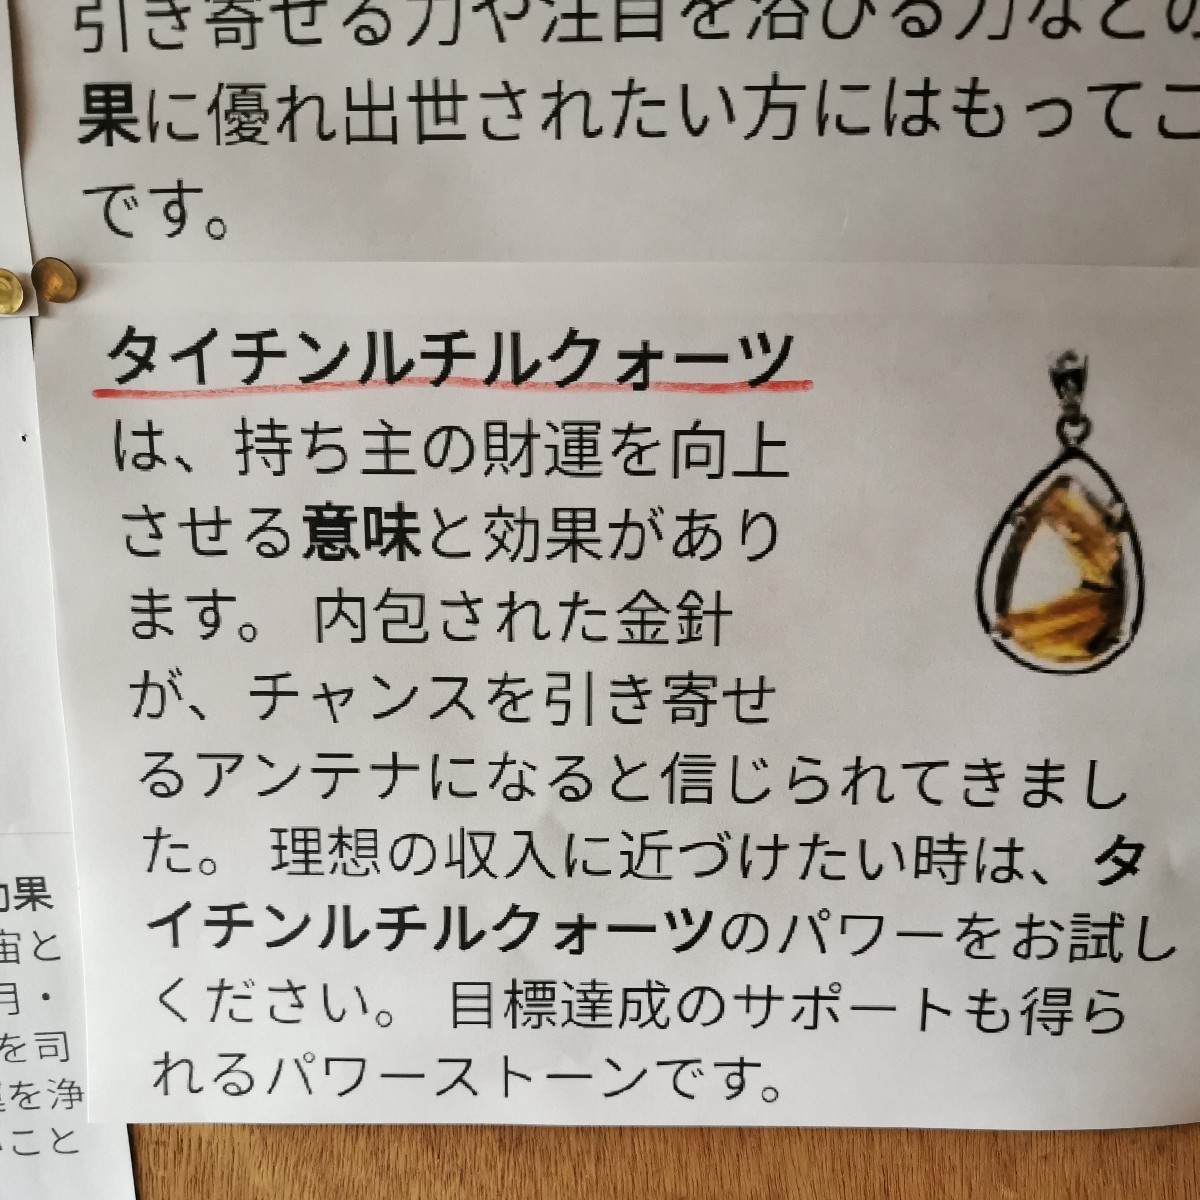 引き寄せる力や注目を浴びる力などの
果に優れ出世されたい方にはもってこ
です。
タイチンルチルクォーツ
は、持ち主の財運を向上
させる意味と効果があり
ます。 内包された金針
が、チャンスを引き寄せ
るアンテナになると信じられてきまし
た。 理想の収入に近づけたい時は、タ
イチンルチルクォーツのパワーをお試し
ください。 目標達成のサポートも得ら
れるパワーストーンです。
効果
宙と
月・
を司
を浄
こと